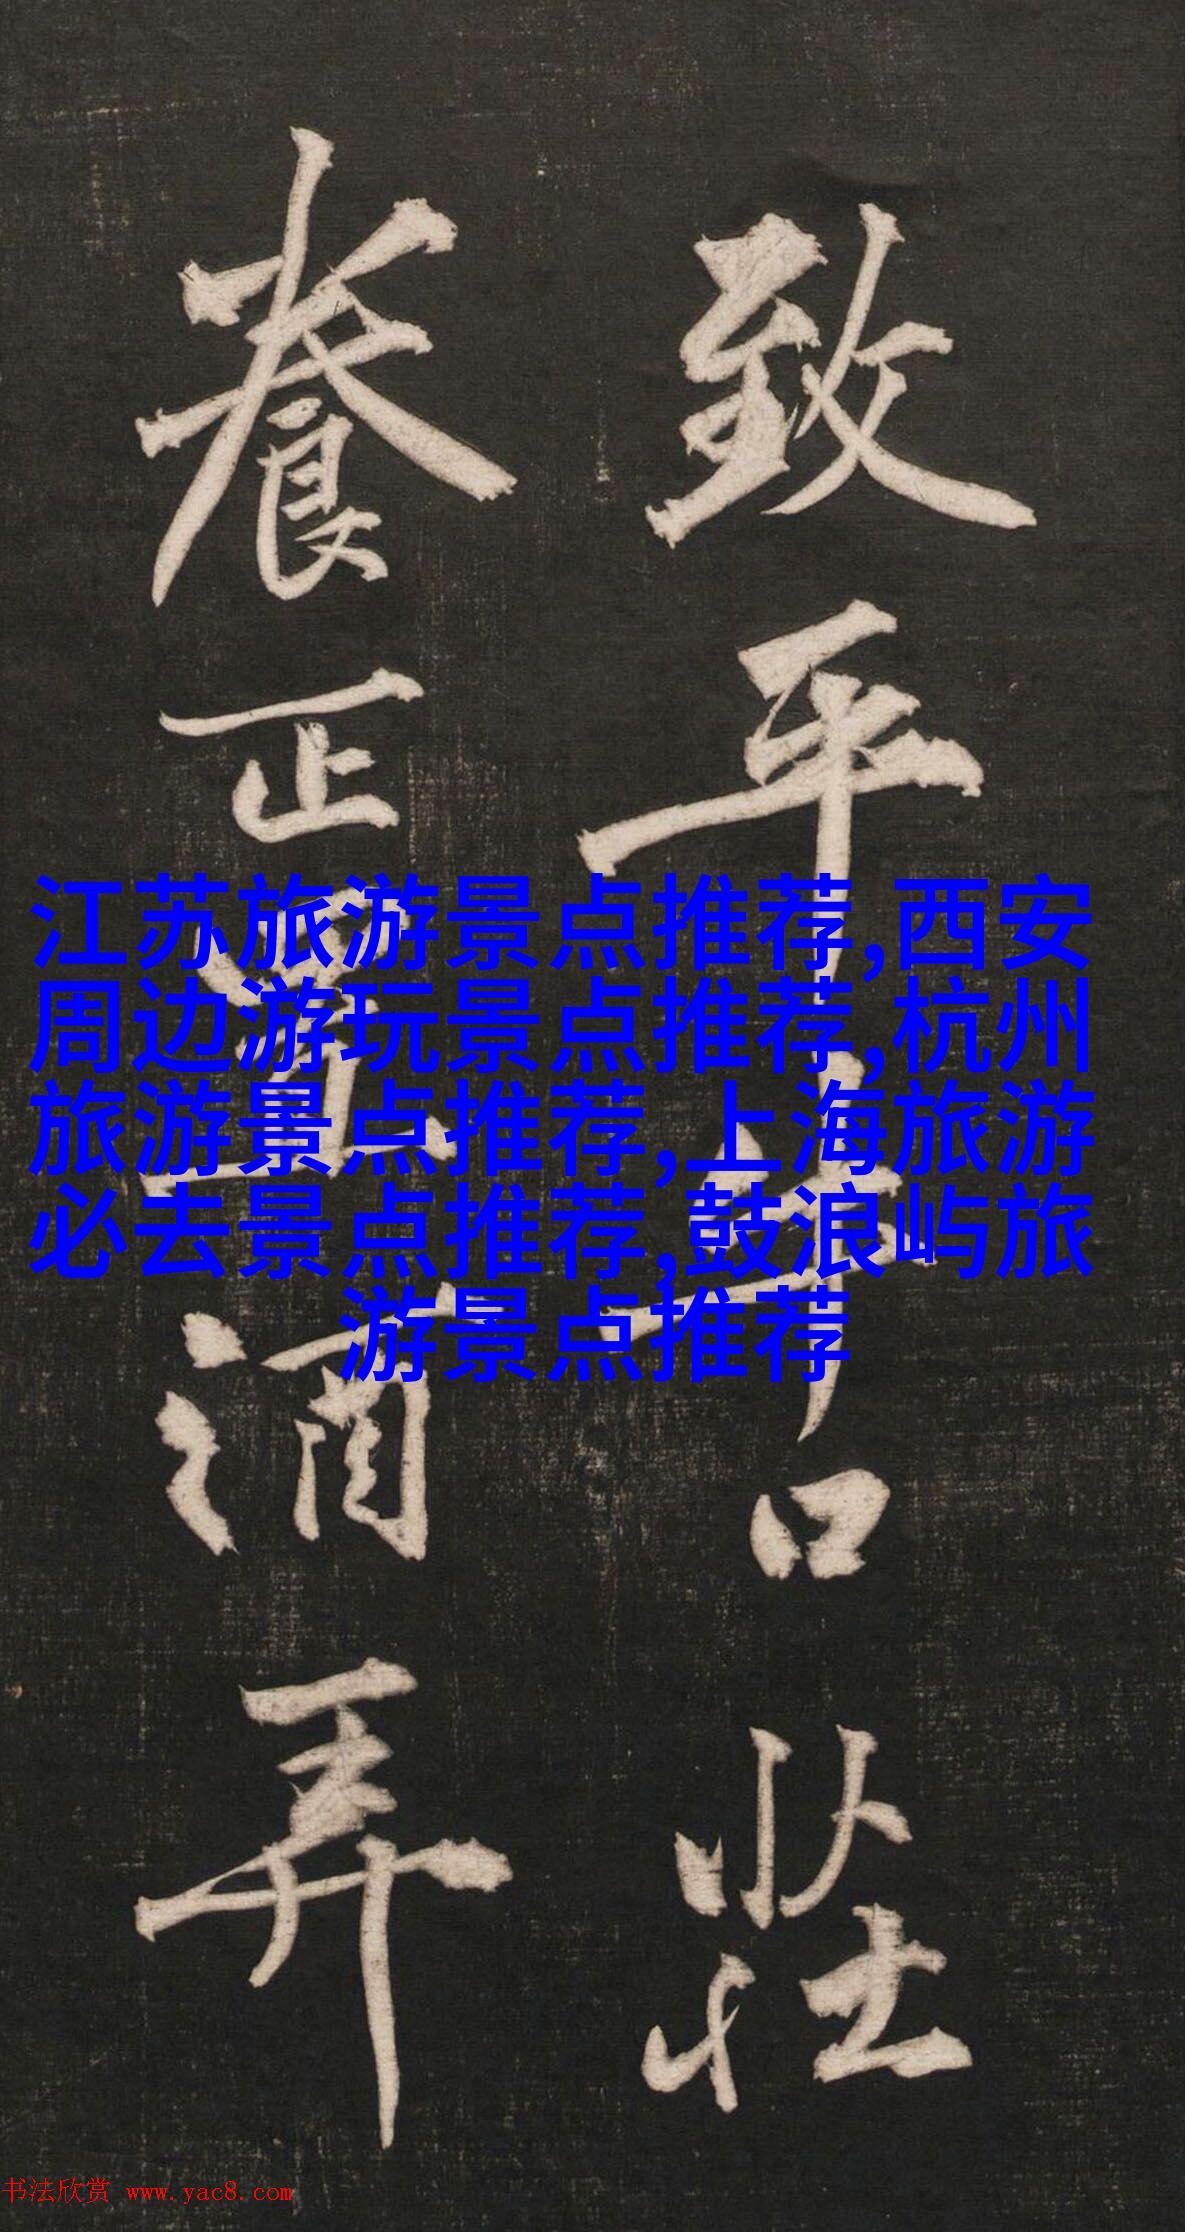 致平牛口莊
養正置酒弄
江苏旅游景点推荐,西安
周边游玩景点推荐,杭州
旅游景点推荐,上海旅游
必去景点推荐,鼓浪屿旅
游景点推荐
书法欣赏 www.yac8.com